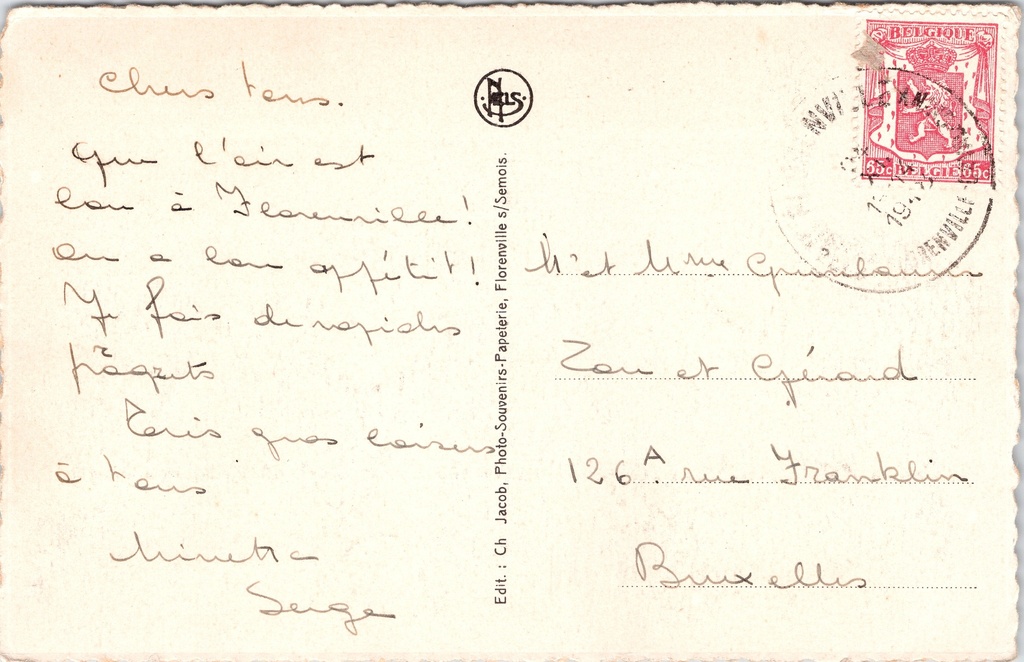 Chers tous.
Que l'air est
bon à Florenville!
On a bon appétit!
Je fais de rapides
progrets
Trois gros baisers
à tous
Minette
Serge
NELS
Edit. : Ch Jacob, Photo-Souvenirs-Papeterie, Florenville s/Semois.
BELGIQUE
65c BELGIË 65c
Mr et Mme
Zou et Gérard
126 A rue Franklin
Bruxelles